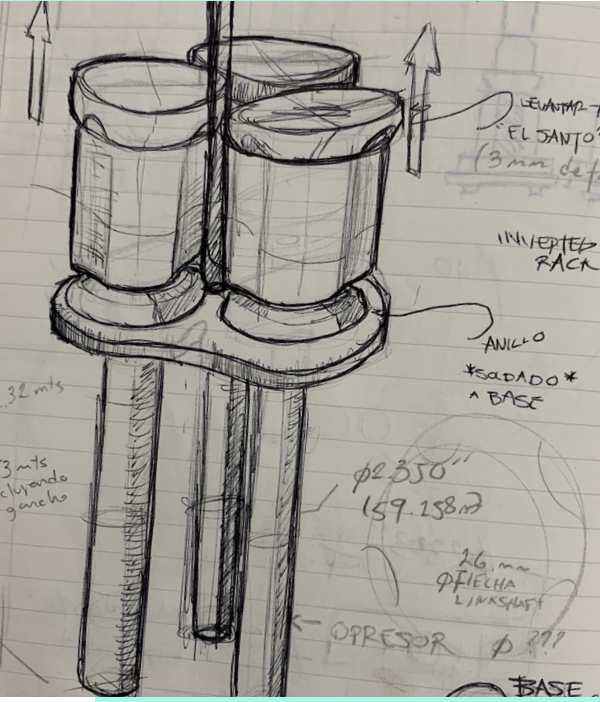 LEVANTAR
"EL SANTO"
(3 mm de
INVERTED
RACK
ANILLO
*SOLDADO*
A BASE
.32 mts
3 mts
cluyendo
gancho
φ2.350"
159.258
26 mm
φ FLECHA
LINKSHAFT
← OPRESOR φ ???
BASE